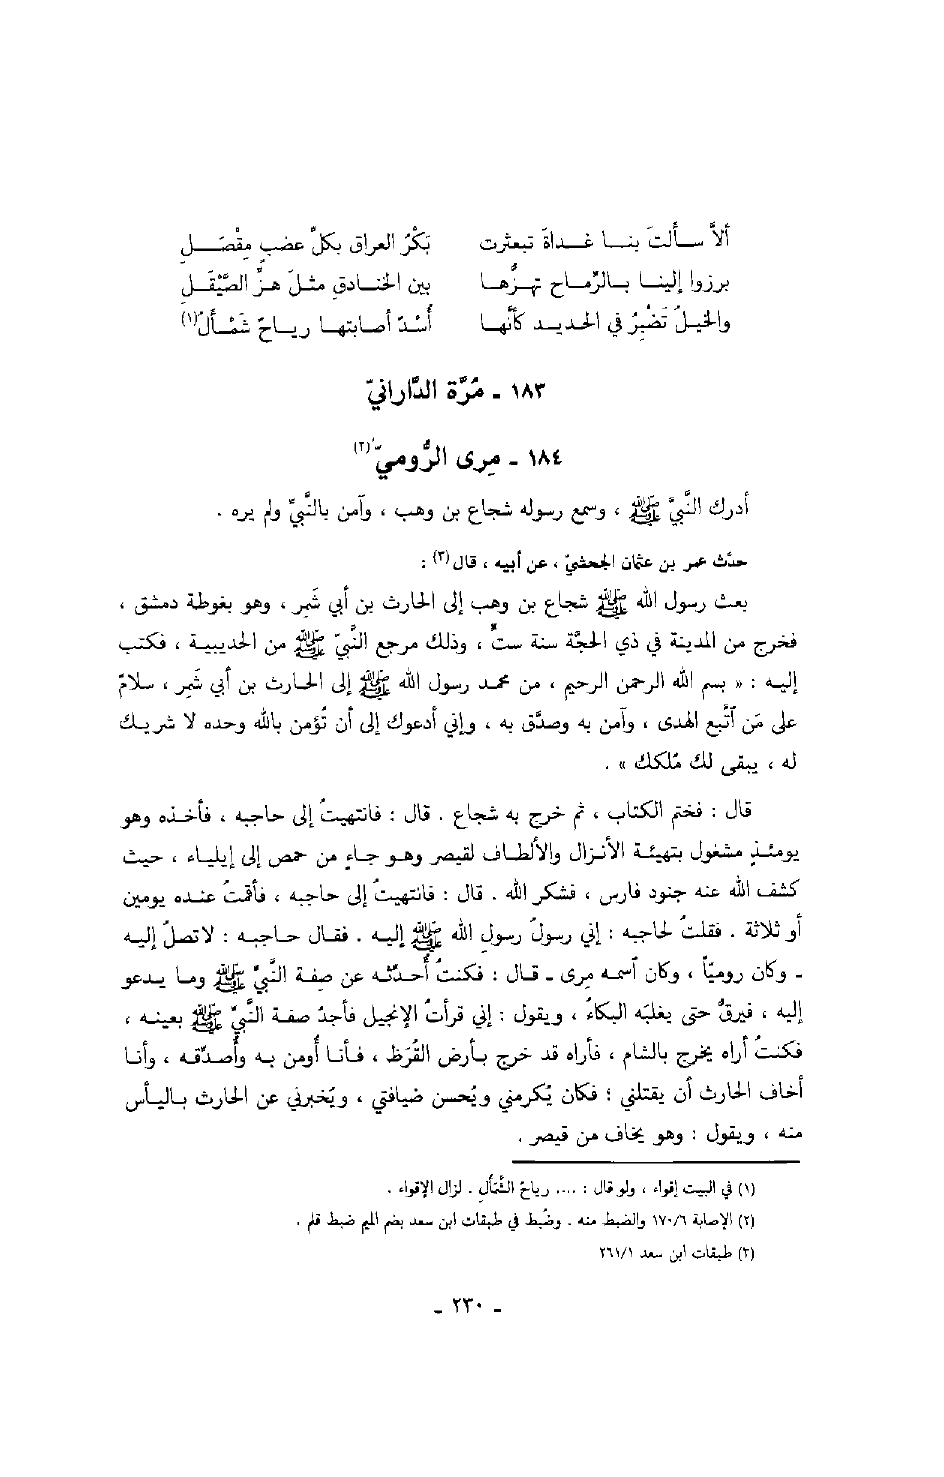 ألاّ سألتَ بنا غداةَ تبعثرت بَكْرُ العراق بكلِّ عضبٍ مِقْصَلِ
برزوا إلينا بالرِّماح تهزُّها بين الخنادقِ مثلَ هزِّ الصَّيْقَلِ
والخيلُ تَضْبِرُ في الحديد كأنَّها أُسْدٌ أصابتها رياحُ شَمْأَلُ(١)
١٨٣ ـ مُرَّة الدَّارانيّ
١٨٤ ـ مِرى الرُّوميّ(٢)
أدرك النَّبيَّ ﷺ ، وسمع رسوله شجاع بن وهب ، وآمن بالنَّبيِّ ولم يره .
حدَّث عمر بن عثمان الجحشيّ ، عن أبيه ، قال(٣) :
بعث رسول الله ﷺ شجاع بن وهب إلى الحارث بن أبي شَمِر ، وهو بغوطة دمشق ،
فخرج من المدينة في ذي الحجَّة سنة ستٍّ ، وذلك مرجع النَّبيّ ﷺ من الحديبية ، فكتب
إليه : « بسم الله الرحمن الرحيم ، من محمد رسول الله ﷺ إلى الحارث بن أبي شَمِر ، سلامٌ
على مَن ٱتَّبع الهدى ، وآمن به وصدَّق به ، وإني أدعوك إلى أن تُؤمن بالله وحده لا شريك
له ، يبقى لك مُلكك » .
قال : فختم الكتاب ، ثم خرج به شجاع . قال : فانتهيتُ إلى حاجبه ، فأخذه وهو
يومئذٍ مشغول بتهيئة الأنزال والألطاف لقيصر وهو جاءٍ من حمص إلى إيلياء ، حيث
كشف الله عنه جنود فارس ، فشكر الله . قال : فانتهيتُ إلى حاجبه ، فأقمتُ عنده يومين
أو ثلاثة . فقلتُ لحاجبه : إني رسولُ رسولِ الله ﷺ إليه . فقال حاجبه : لا تصلُ إليه
ـ وكان روميّاً ، وكان ٱسمه مِرى ـ قال : فكنتُ أُحدّثه عن صِفة النَّبيِّ ﷺ وما يدعو
إليه ، فيرِقُّ حتى يغلبَه البكاءُ ، ويقول : إني قرأتُ الإنجيل فأجدُ صفة النَّبيِّ ﷺ بعينه ،
فكنتُ أراه يخرج بالشام ، فأراه قد خرج بأرض القُرَظ ، فأنا أُومن به وأُصدّقه ، وأنا
أخاف الحارث أن يقتلني ؛ فكان يُكرمني ويُحسن ضيافتي ، ويُخبرني عن الحارث باليأس
منه ، ويقول : وهو يخاف من قيصر .
(١) في البيت إقواء ، ولو قال : .... رياحُ الشَّمْأَلِ . لزال الإقواء .
(٢) الإصابة ١٧٠/٦ والضبط منه . وضُبط في طبقات ابن سعد بضم الميم ضبط قلم .
(٣) طبقات ابن سعد ٢٦١/١
ـ ٢٣٠ ـ